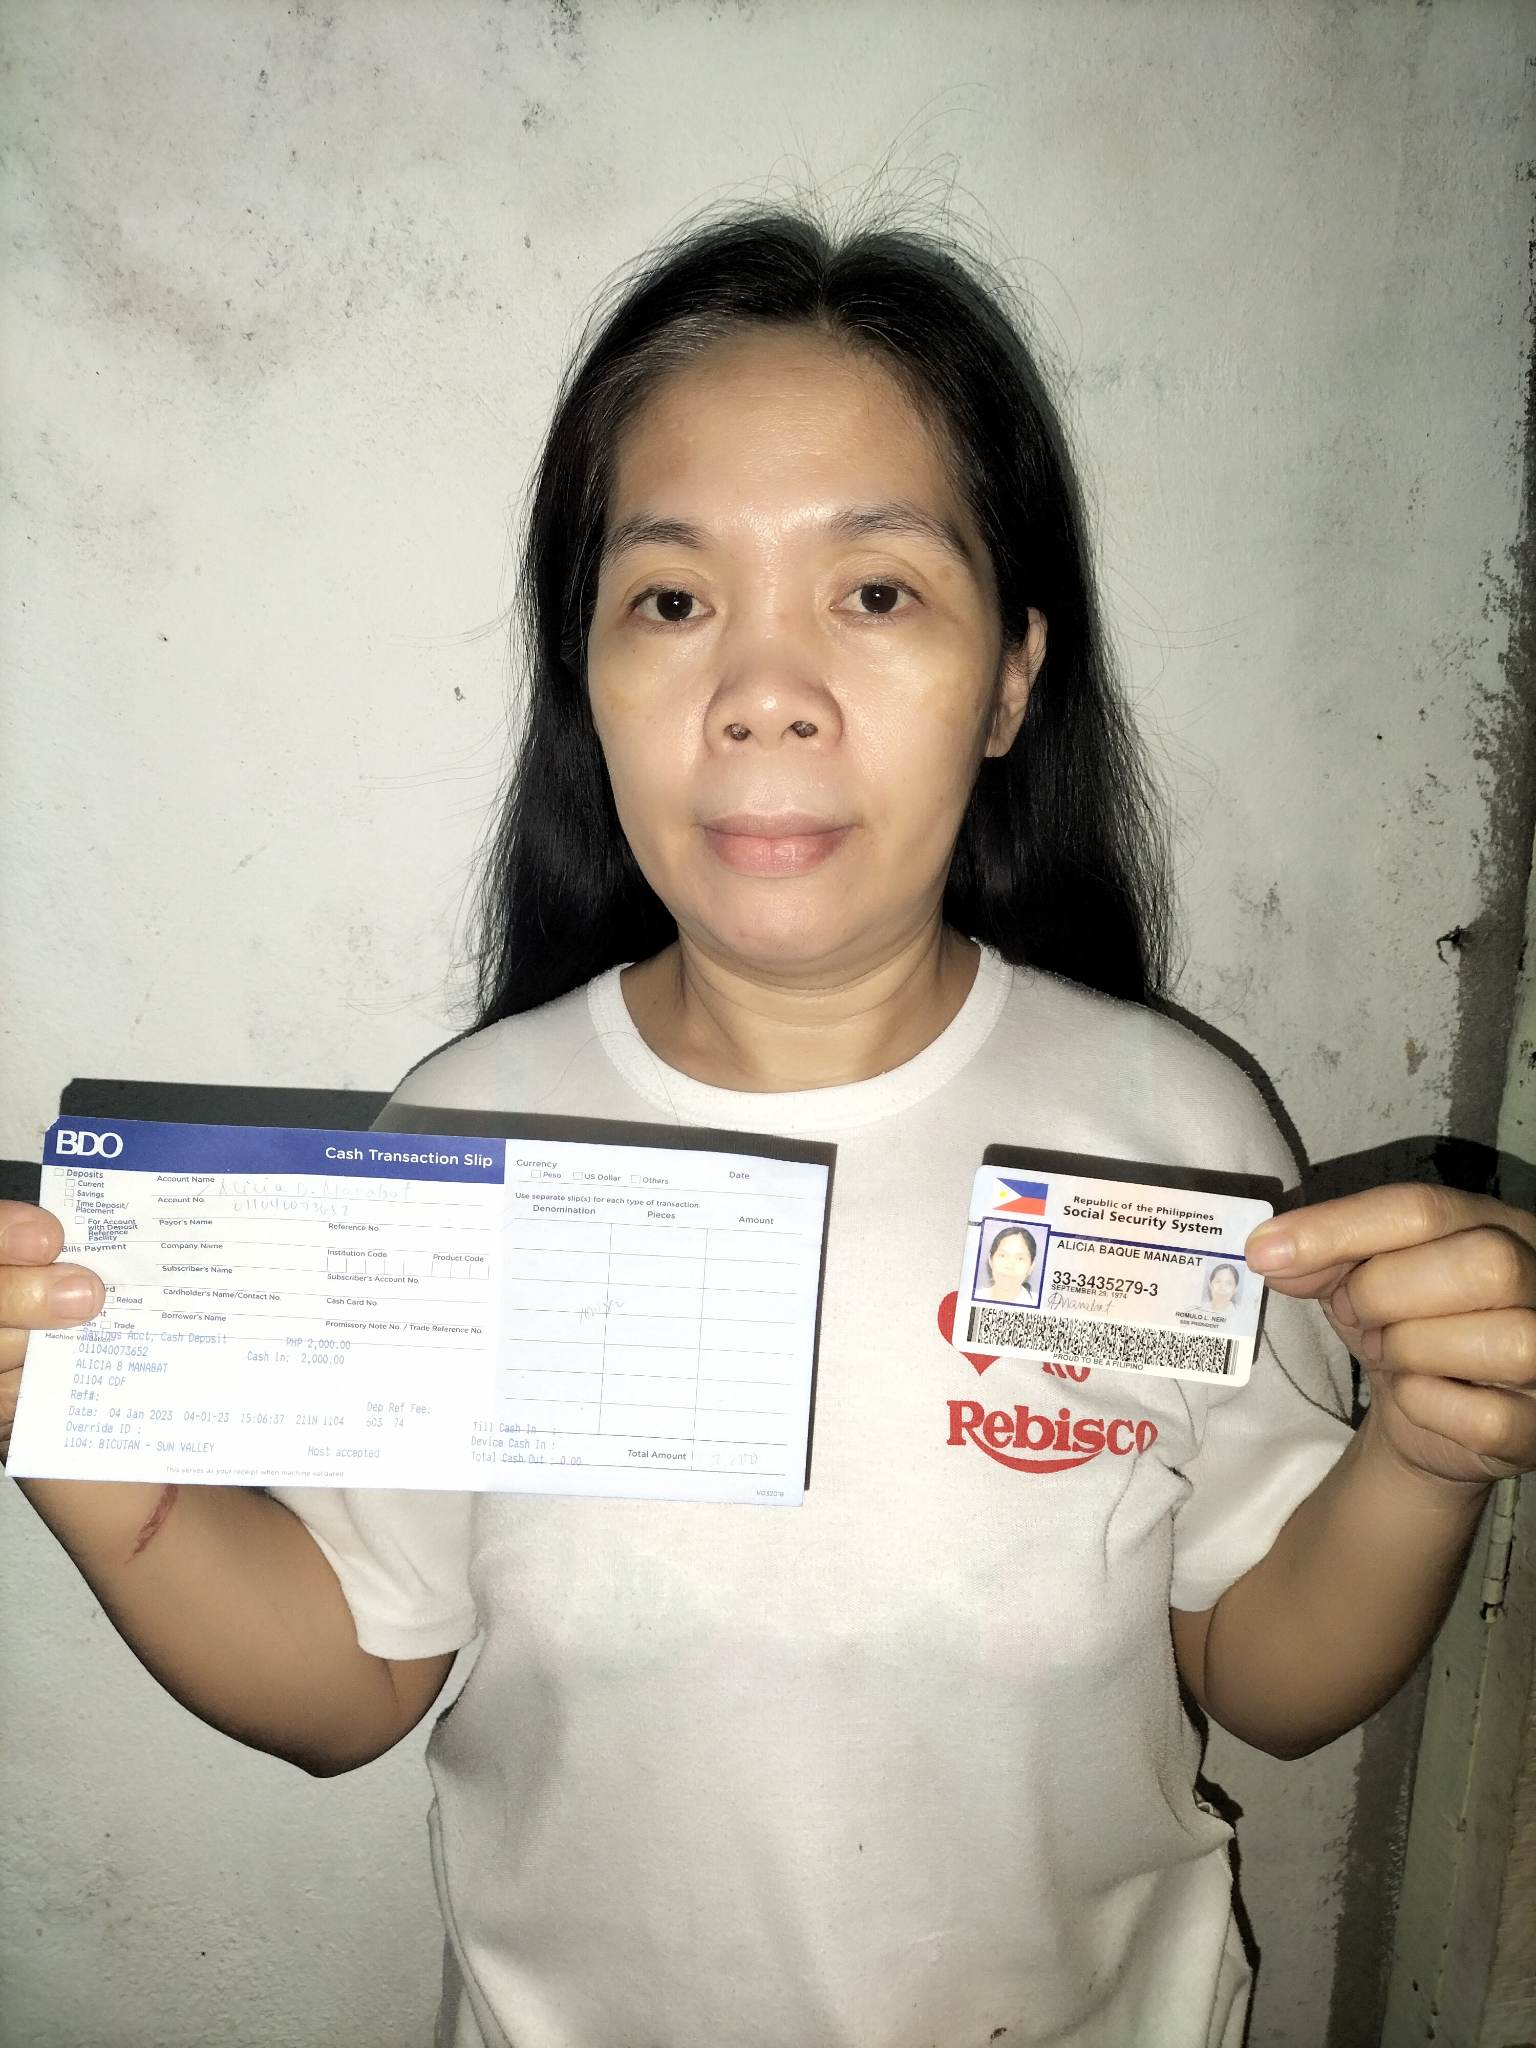 BDO
Cash Transaction Slip
Deposits
Current
Savings
Time Deposit/
Placement
For Account
with Deposit
Reference
Facility
Bills Payment
Reload
Trade
Account Name
Alicia B. Manabat
Account No.
011040073652
Payor's Name
Reference No.
Company Name
Institution Code
Product Code
Subscriber's Name
Subscriber's Account No.
Cardholder's Name/Contact No.
Cash Card No.
Borrower's Name
Promissory Note No. / Trade Reference No.
Machine Validation
Savings Acct, Cash Deposit
PHP 2,000.00
011040073652
Cash In: 2,000.00
ALICIA B MANABAT
01104 CDF
Ref#:
Dep Ref Fee:
Date: 04 Jan 2023 04-01-23 15:06:37 211N 1104 603 74
Override ID :
1104: BICUTAN - SUN VALLEY
Host accepted
Till Cash In :
Device Cash In :
Total Cash Out : 0.00
This serves as your receipt when machine validated
Currency
Peso
US Dollar
Others
Date
Use separate slip(s) for each type of transaction
Denomination
Pieces
Amount
Total Amount
2,000
Republic of the Philippines
Social Security System
ALICIA BAQUE MANABAT
33-3435279-3
SEPTEMBER 29, 1974
Manabat
ROMULO L. NERI
SSS PRESIDENT
PROUD TO BE A FILIPINO
KO
Rebisco